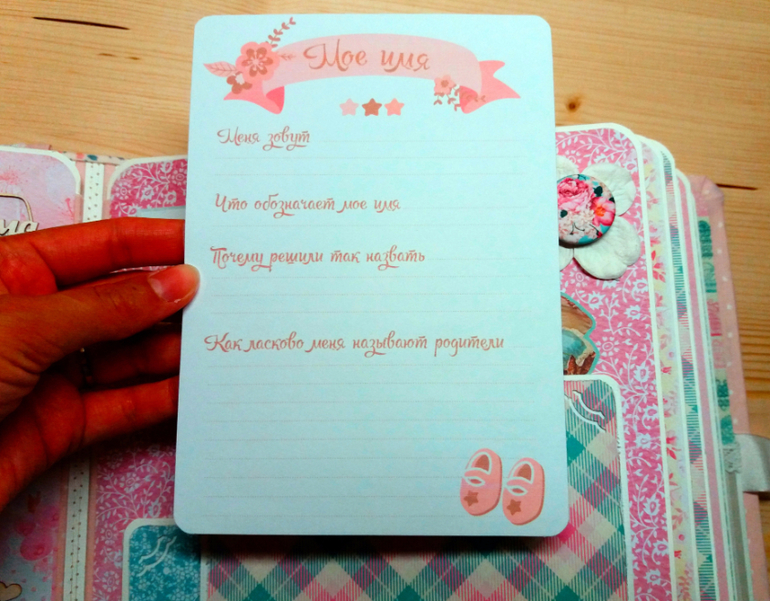 Мое имя
Меня зовут
Что обозначает мое имя
Почему решили так назвать
Как ласково меня называют родители